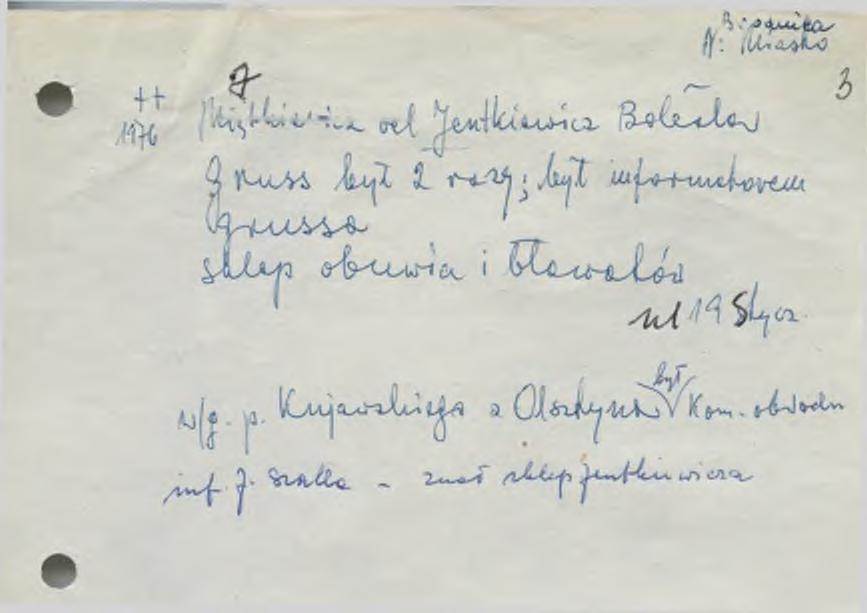 N: Miasko
3
7
++
1976
Miętkiewicz vel Jentkiewicz Bolesław
Gruss był 2 razy; był informatorem
Grussa
sklep obuwia i bławatów
ul 19 Stycz.
w/g. p. Kujawskiego z Olsztyna był Kom. obwodu
inf. J. Szalla - znał sklep Jentkiewicza